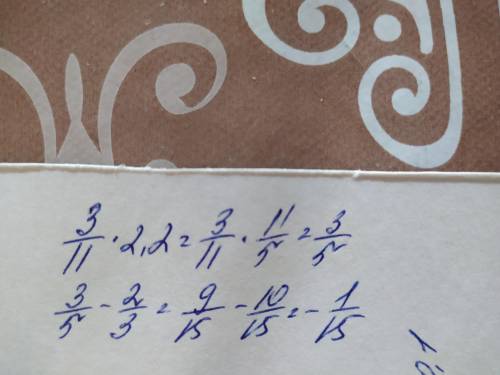 3/11 · 2,2 = 3/11 · 11/5 = 3/5
3/5 - 2/3 = 9/15 - 10/15 = - 1/15